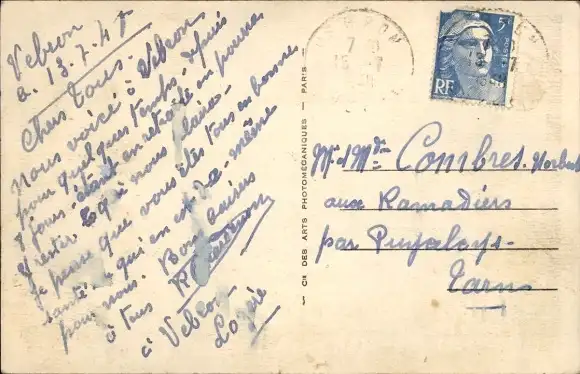 Vebron
a. 13.7.47
Chers Tous.
nous voici à Vebron
pour quelques temps. depuis
7 jours étant en retraite on pourra
rester ce qui nous plaira.
Je pense que vous êtes tous en bonne
santé ce qui en est de même
pour nous. Bons baisers
à tous
à Vebron
Lozère
Cie DES ARTS PHOTOMÉCANIQUES - PARIS
5F
RF
Mr et Mme Combres. Norbert
aux Ramadiers
par Puycelcy-
Tarn